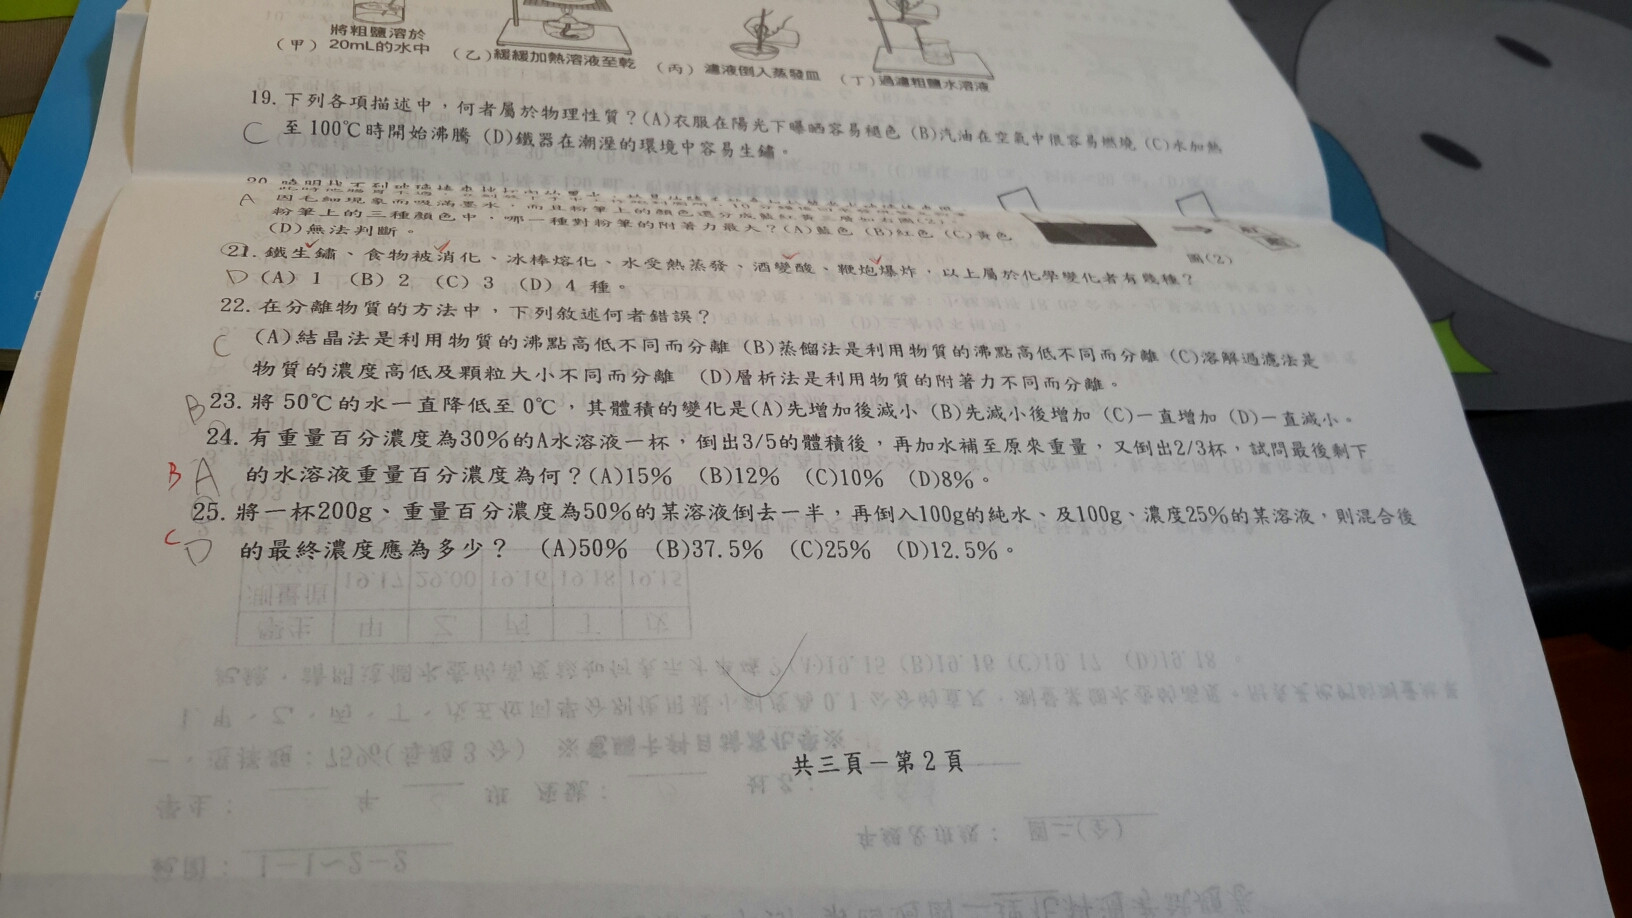 將粗鹽溶於
(甲) 20mL的水中
(乙) 緩緩加熱溶液至乾
(丙) 濾液倒入蒸發皿
(丁) 過濾粗鹽水溶液
19. 下列各項描述中，何者屬於物理性質？(A)衣服在陽光下曝晒容易褪色 (B)汽油在空氣中很容易燃燒 (C)水加熱
C 至 100℃時開始沸騰 (D)鐵器在潮溼的環境中容易生鏽。
A 因毛細現象而吸滿墨水，而且粉筆上的顏色還分成藍紅黃三層如右圖(2)。
粉筆上的三種顏色中，哪一種對粉筆的附著力最大？(A)藍色 (B)紅色 (C)黃色
(D)無法判斷。
圖(2)
21. 鐵生鏽、食物被消化、冰棒熔化、水受熱蒸發、酒變酸、鞭炮爆炸，以上屬於化學變化者有幾種？
D (A) 1 (B) 2 (C) 3 (D) 4 種。
22. 在分離物質的方法中，下列敘述何者錯誤？
C (A)結晶法是利用物質的沸點高低不同而分離 (B)蒸餾法是利用物質的沸點高低不同而分離 (C)溶解過濾法是
物質的濃度高低及顆粒大小不同而分離 (D)層析法是利用物質的附著力不同而分離。
B 23. 將 50℃的水一直降低至 0℃，其體積的變化是(A)先增加後減小 (B)先減小後增加 (C)一直增加 (D)一直減小。
24. 有重量百分濃度為30%的A水溶液一杯，倒出3/5的體積後，再加水補至原來重量，又倒出2/3杯，試問最後剩下
B A 的水溶液重量百分濃度為何？(A)15% (B)12% (C)10% (D)8%。
25. 將一杯200g、重量百分濃度為50%的某溶液倒去一半，再倒入100g的純水、及100g、濃度25%的某溶液，則混合後
C D 的最終濃度應為多少？ (A)50% (B)37.5% (C)25% (D)12.5%。
共三頁－第2頁